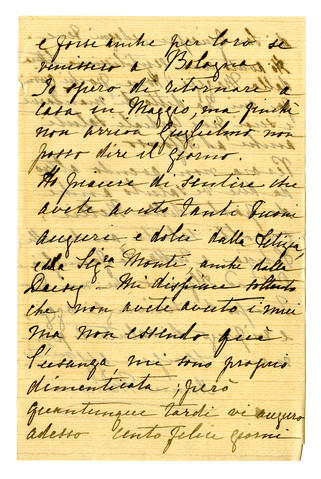 e forse anche per loro se
venissero a Bologna
Io spero di ritornare a
casa in Maggio, ma finché
non arriva Guglielmo non
posso dire il giorno.
Ho piacere di sentire che
avete avuto tanti buoni
auguri e dolci dalla Letizia,
dalla Sig.ra Monti, anche dalla
Daisy. Mi dispiace soltanto
che non avete avuto i miei
ma non essendo qui
l'usanza, mi sono proprio
dimenticata; però
quantunque tardi vi auguro
adesso cento felici giorni